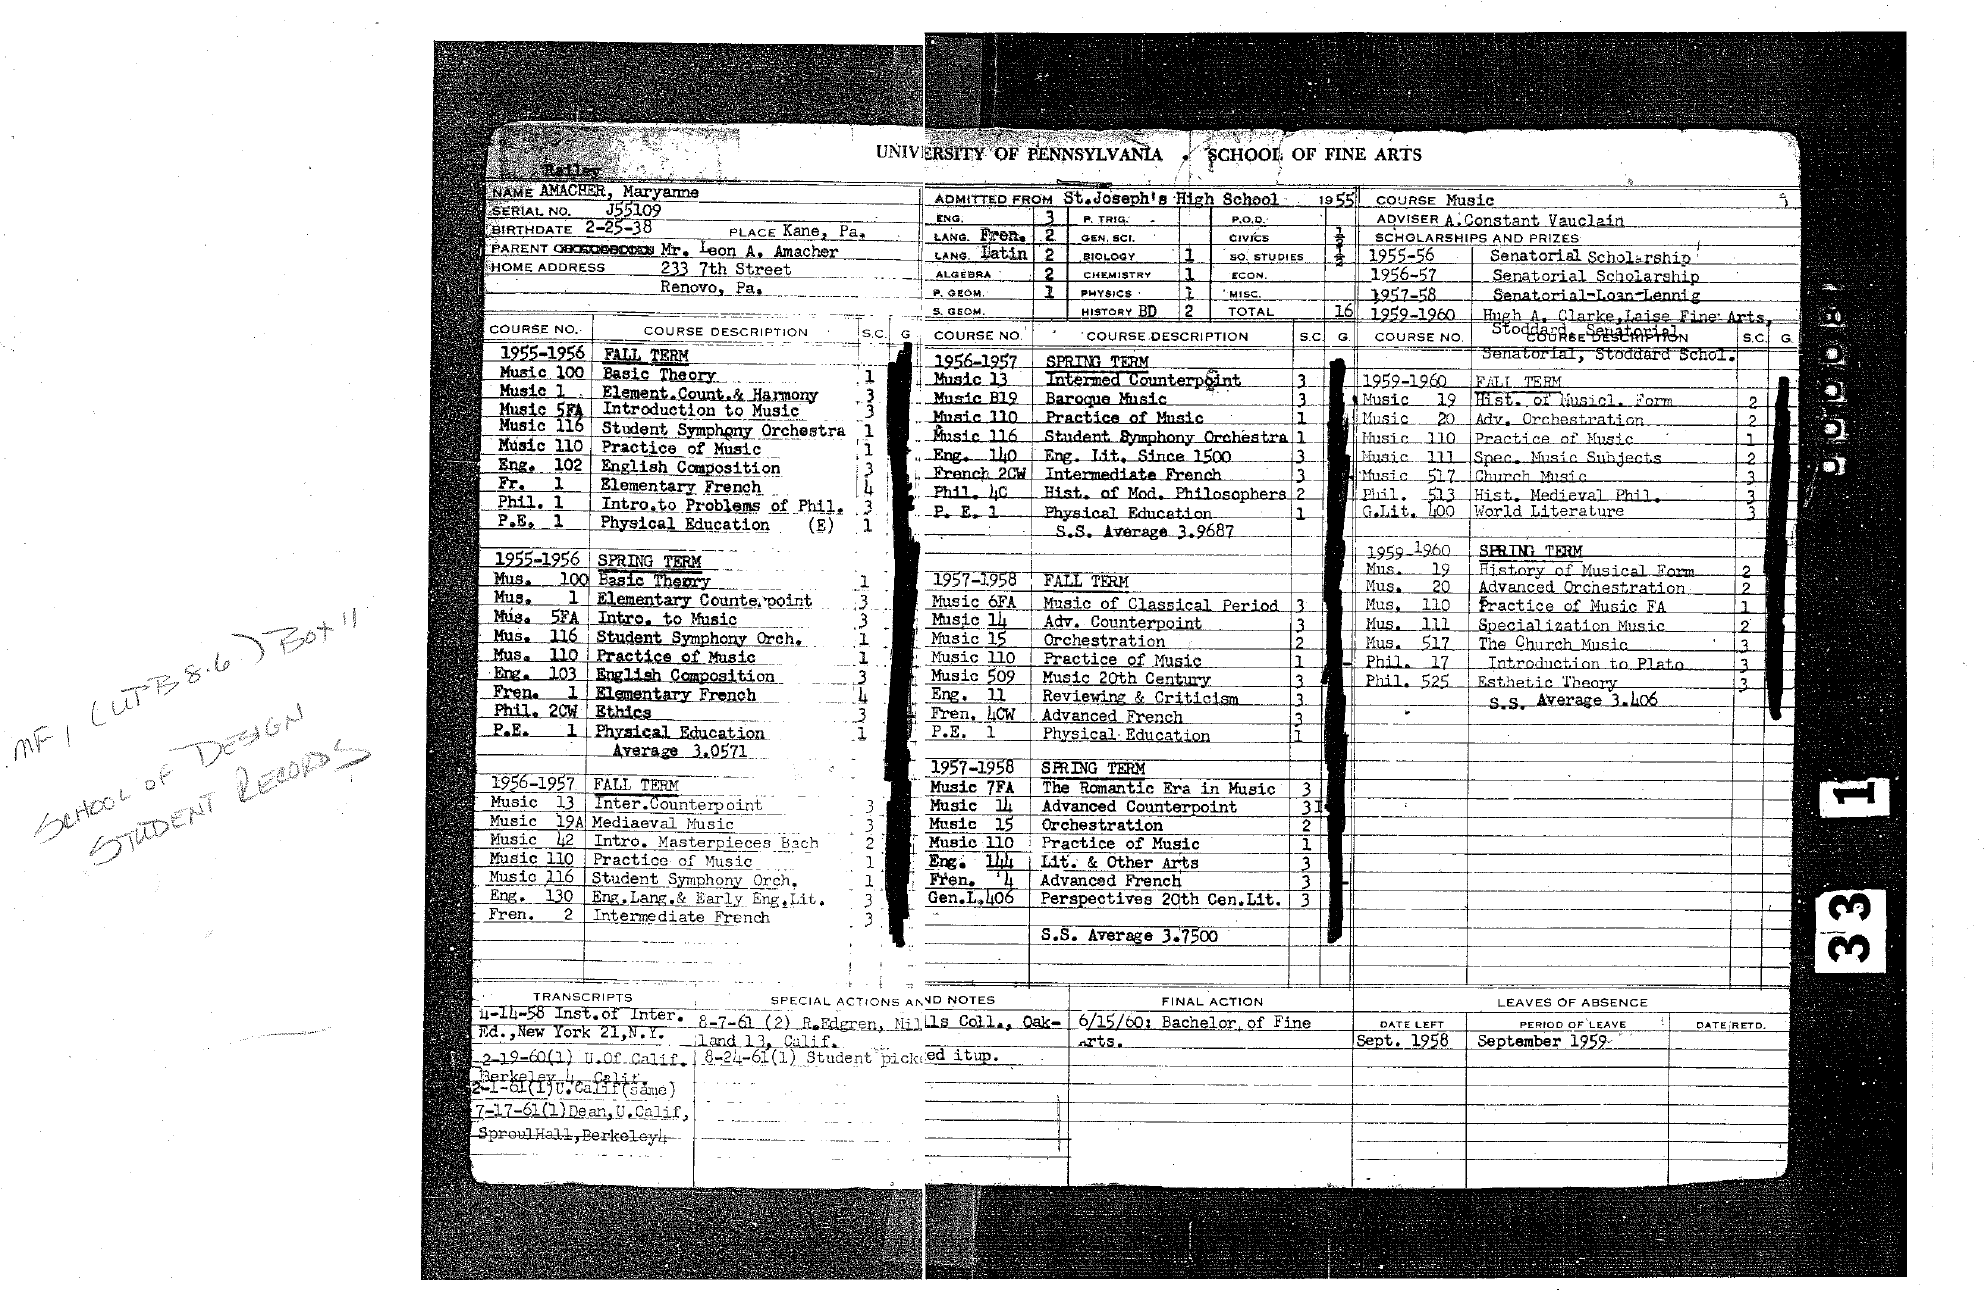 MF 1 (UPB 8.6) Box 11
SCHOOL OF DESIGN
STUDENT RECORDS
UNIVERSITY OF PENNSYLVANIA . SCHOOL OF FINE ARTS
NAME AMACHER, Maryanne
SERIAL NO. J55109
BIRTHDATE 2-25-38 PLACE Kane, Pa.
PARENT Mr. Leon A. Amacher
HOME ADDRESS 233 7th Street
Renovo, Pa.
ADMITTED FROM St.Joseph's High School 1955
ENG. 3 P. TRIG. P.O.D.
LANG. Fren. 2 GEN. SCI. CIVICS ½
LANG. Latin 2 BIOLOGY 1 SO. STUDIES ½
ALGEBRA 2 CHEMISTRY 1 ECON.
P. GEOM. 1 PHYSICS 1 MISC.
S. GEOM. HISTORY BD 2 TOTAL 16
COURSE Music
ADVISER A. Constant Vauclain
SCHOLARSHIPS AND PRIZES
1955-56 Senatorial Scholarship
1956-57 Senatorial Scholarship
1957-58 Senatorial-Loan-Lennig
1959-1960 Hugh A. Clarke, Laise Fine Arts,
Stoddard, Senatorial
Senatorial, Stoddard Schol.
COURSE NO. COURSE DESCRIPTION S.C. G
1955-1956 FALL TERM
Music 100 Basic Theory 1
Music 1 Element.Count.& Harmony 3
Music 5FA Introduction to Music 3
Music 116 Student Symphony Orchestra 1
Music 110 Practice of Music 1
Eng. 102 English Composition 3
Fr. 1 Elementary French 4
Phil. 1 Intro.to Problems of Phil. 3
P.E. 1 Physical Education (E) 1
1955-1956 SPRING TERM
Mus. 100 Basic Theory 1
Mus. 1 Elementary Counterpoint 3
Mus. 5FA Intro. to Music 3
Mus. 116 Student Symphony Orch. 1
Mus. 110 Practice of Music 1
Eng. 103 English Composition 3
Fren. 1 Elementary French 4
Phil. 2CW Ethics 3
P.E. 1 Physical Education 1
Average 3.0571
1956-1957 FALL TERM
Music 13 Inter.Counterpoint 3
Music 19A Mediaeval Music 3
Music 42 Intro. Masterpieces Bach 2
Music 110 Practice of Music 1
Music 116 Student Symphony Orch. 1
Eng. 130 Eng.Lang.& Early Eng.Lit. 3
Fren. 2 Intermediate French 3
COURSE NO. COURSE DESCRIPTION S.C. G.
1956-1957 SPRING TERM
Music 13 Intermed Counterpoint 3
Music B19 Baroque Music 3
Music 110 Practice of Music 1
Music 116 Student Symphony Orchestra 1
Eng. 140 Eng. Lit. Since 1500 3
French 2CW Intermediate French 3
Phil. 4C Hist. of Mod. Philosophers 2
P. E. 1 Physical Education 1
S.S. Average 3.9687
1957-1958 FALL TERM
Music 6FA Music of Classical Period 3
Music 14 Adv. Counterpoint 3
Music 15 Orchestration 2
Music 110 Practice of Music 1
Music 509 Music 20th Century 3
Eng. 11 Reviewing & Criticism 3
Fren. 4CW Advanced French 3
P.E. 1 Physical Education 1
1957-1958 SPRING TERM
Music 7FA The Romantic Era in Music 3
Music 14 Advanced Counterpoint 3
Music 15 Orchestration 2
Music 110 Practice of Music 1
Eng. 144 Lit. & Other Arts 3
Fren. 4 Advanced French 3
Gen.L.406 Perspectives 20th Cen.Lit. 3
S.S. Average 3.7500
COURSE NO. COURSE DESCRIPTION S.C. G.
1959-1960 FALL TERM
Music 19 Hist. of Musicl. Form 2
Music 20 Adv. Orchestration 2
Music 110 Practice of Music 1
Music 111 Spec. Music Subjects 2
Music 517 Church Music 3
Phil. 513 Hist. Medieval Phil. 3
G.Lit. 400 World Literature 3
1959-1960 SPRING TERM
Mus. 19 History of Musical Form 2
Mus. 20 Advanced Orchestration 2
Mus. 110 Practice of Music FA 1
Mus. 111 Specialization Music 2
Mus. 517 The Church Music 3
Phil. 17 Introduction to Plato 3
Phil. 525 Esthetic Theory 3
S.S. Average 3.406
TRANSCRIPTS
4-14-58 Inst.of Inter.
Ed.,New York 21,N.Y.
2-19-60(1) U.Of Calif.
Berkeley 4, Calif.
2-1-61(1)U.Calif(same)
7-17-61(1)Dean,U.Calif,
SproulHall,Berkeley4
SPECIAL ACTIONS AND NOTES
8-7-61 (2) R.Edgren, Mills Coll., Oak-
land 13, Calif.
8-24-61(1) Student picked itup.
FINAL ACTION
6/15/60: Bachelor of Fine
Arts.
LEAVES OF ABSENCE
DATE LEFT PERIOD OF LEAVE DATE RETD.
Sept. 1958 September 1959
1
33